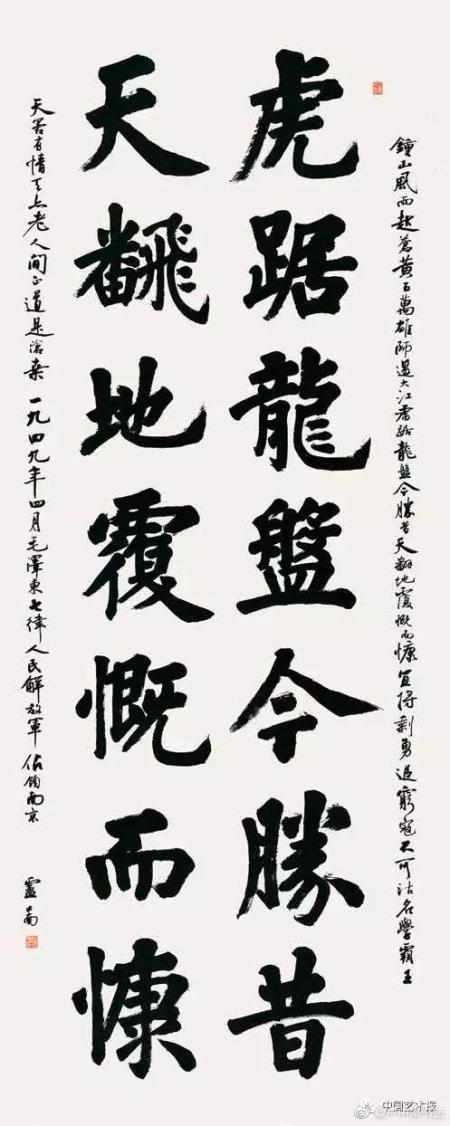 虎踞龍盤今勝昔
天飜地覆慨而慷
鐘山風雨起蒼黃百萬雄師過大江虎踞龍盤今勝昔天翻地覆慨而慷宜將剩勇追窮寇不可沽名學霸王
天若有情天亦老人間正道是滄桑一九四九年四月毛澤東七律人民解放軍佔領南京
中国艺术报